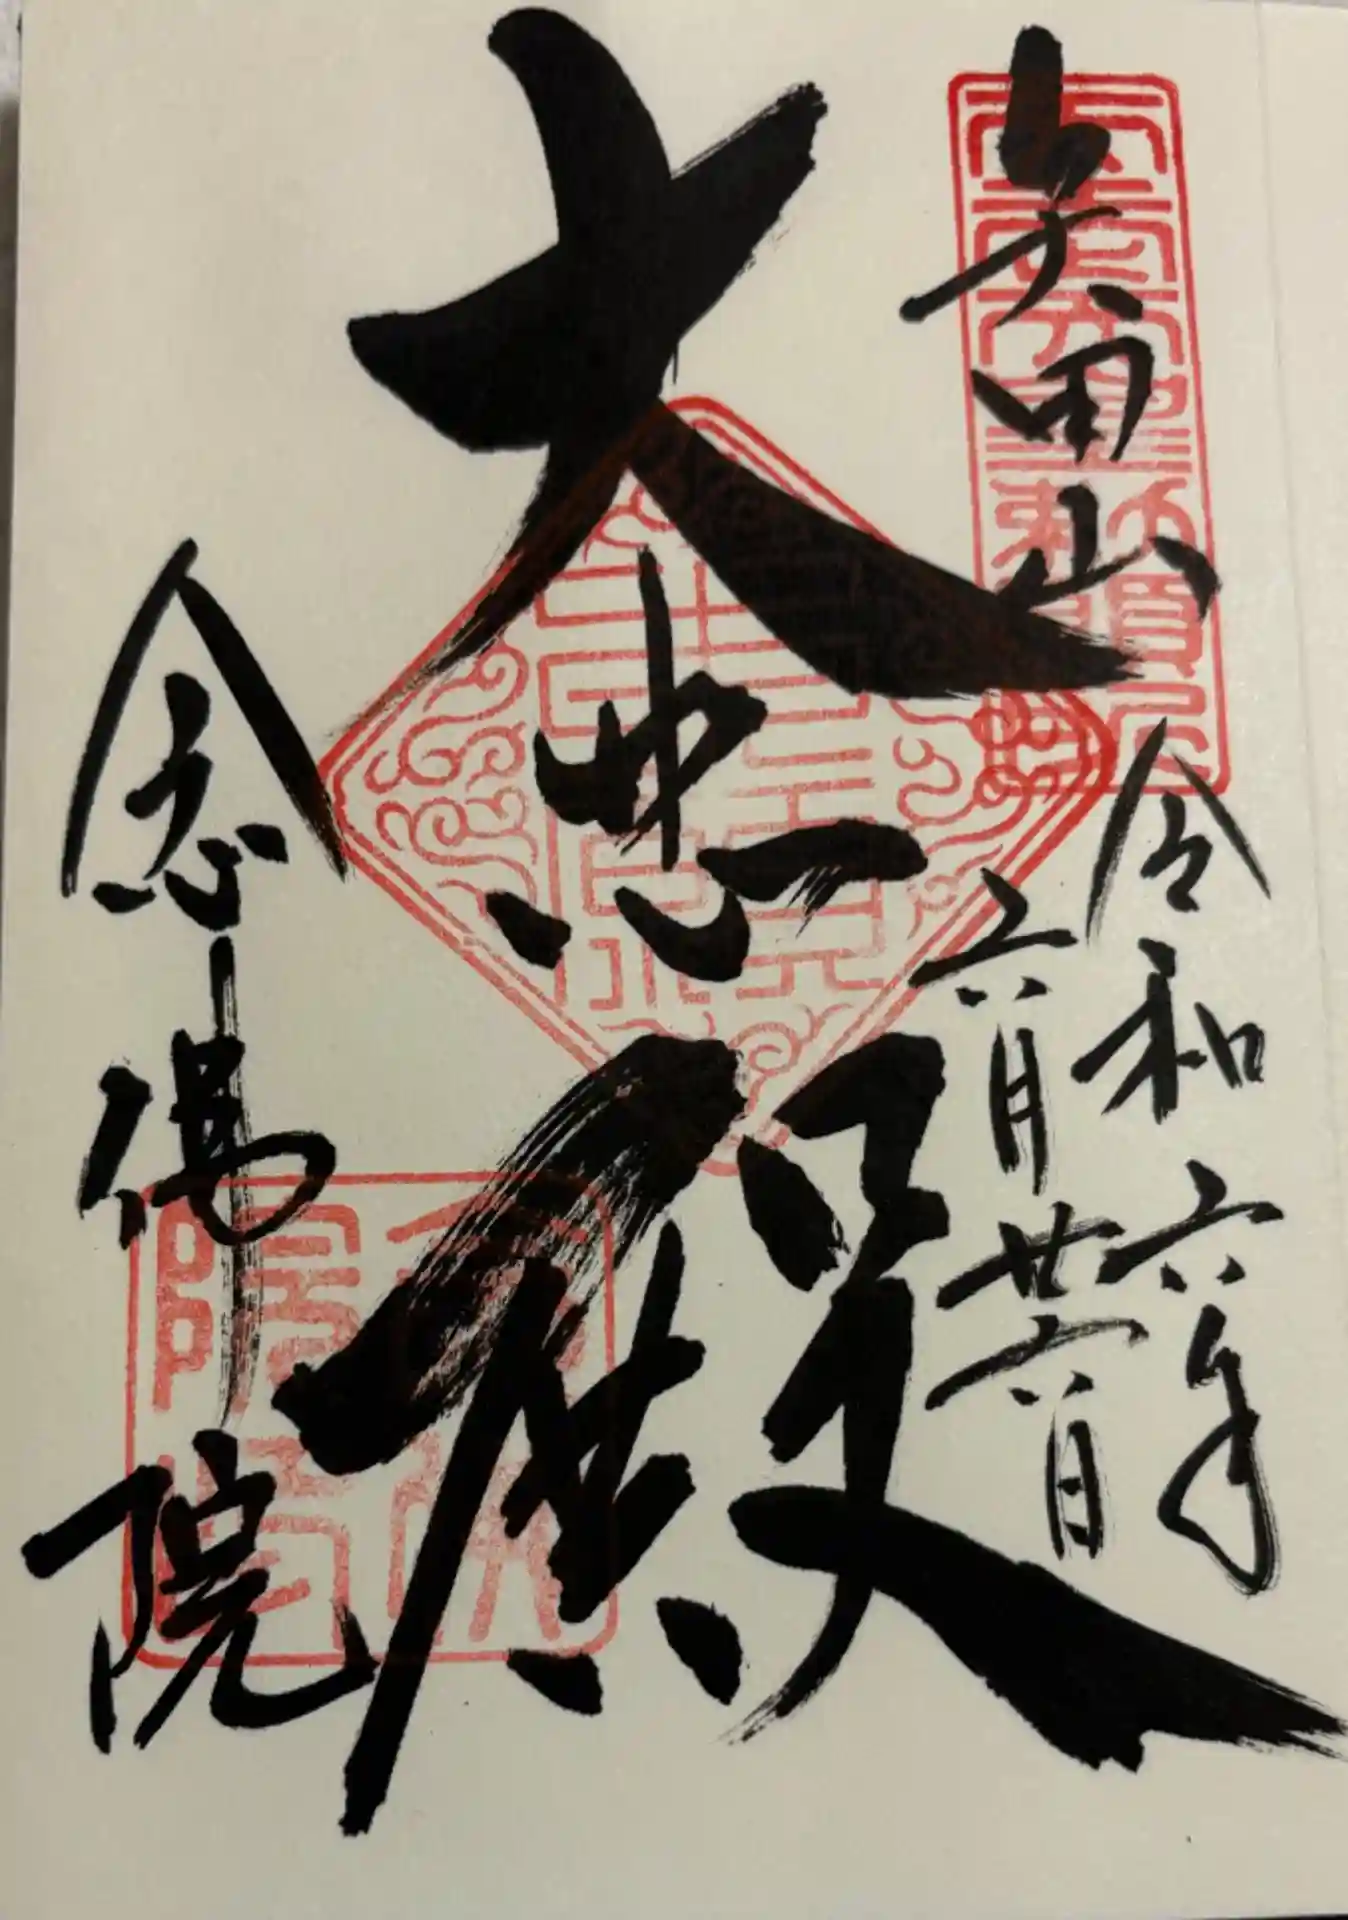 矢田山
令和六年
六月廿六日
大悲殿
念佛院